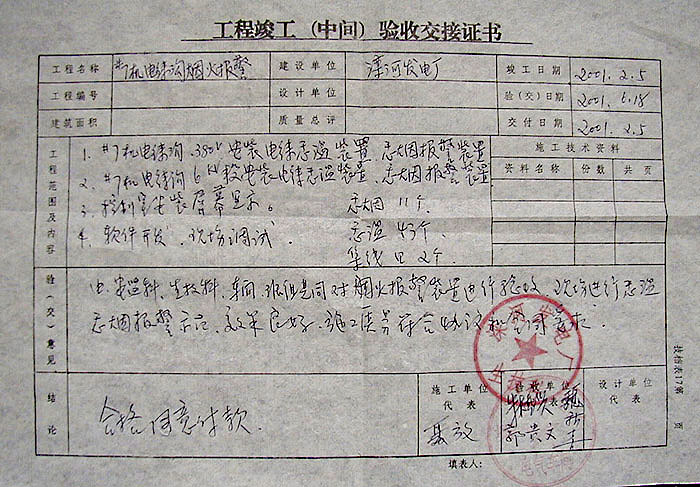 工程竣工（中间）验收交接证书
工程名称 #7机电缆沟烟火报警 建设单位 滦河发电厂 竣工日期 2001.2.5
工程编号 设计单位 验(交)日期 2001.6.18
建筑面积 质量总评 交付日期 2001.2.5
工程范围及内容
1. #7机电缆沟.380V 安装电缆感温装置.感烟报警装置
2. #7机电缆沟6KV段安装电缆感温装置.感烟报警装置
3. 控制室安装屏幕显示。 感烟11个.
4. 软件开发.现场调试. 感温43个.
集线器2个.
施工技术资料
资料名称 份数 共页
验(交)意见
由.安监科.生技科.车间.班组共同对烟火报警装置进行验收.现场进行感温
感烟报警示范.效果良好.施工质量符合协议合同要求.
结论
合格同意付款.
施工单位代表 验收单位代表 设计单位代表
聂放 郭贵文
填表人：
技档表17第 页